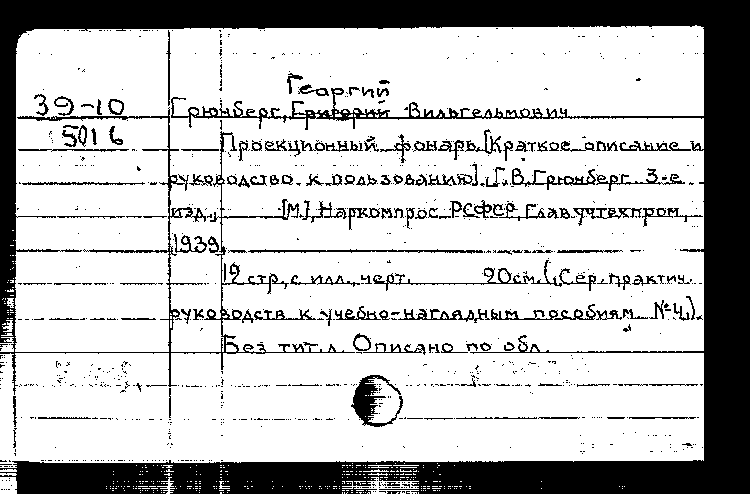 Георгий
39-10 Грюнберг, Григорий Вильгельмович
5016 Проекционный фонарь. [Краткое описание и
руководство к пользованию]. Г.В. Грюнберг. 3-е
изд., [М], Наркомпрос РСФСР, Главучтехпром,
1939.
12 стр., с илл., черт. 20см. (Сер. практич.
руководств к учебно-наглядным пособиям №4).
Без тит. л. Описано по обл.